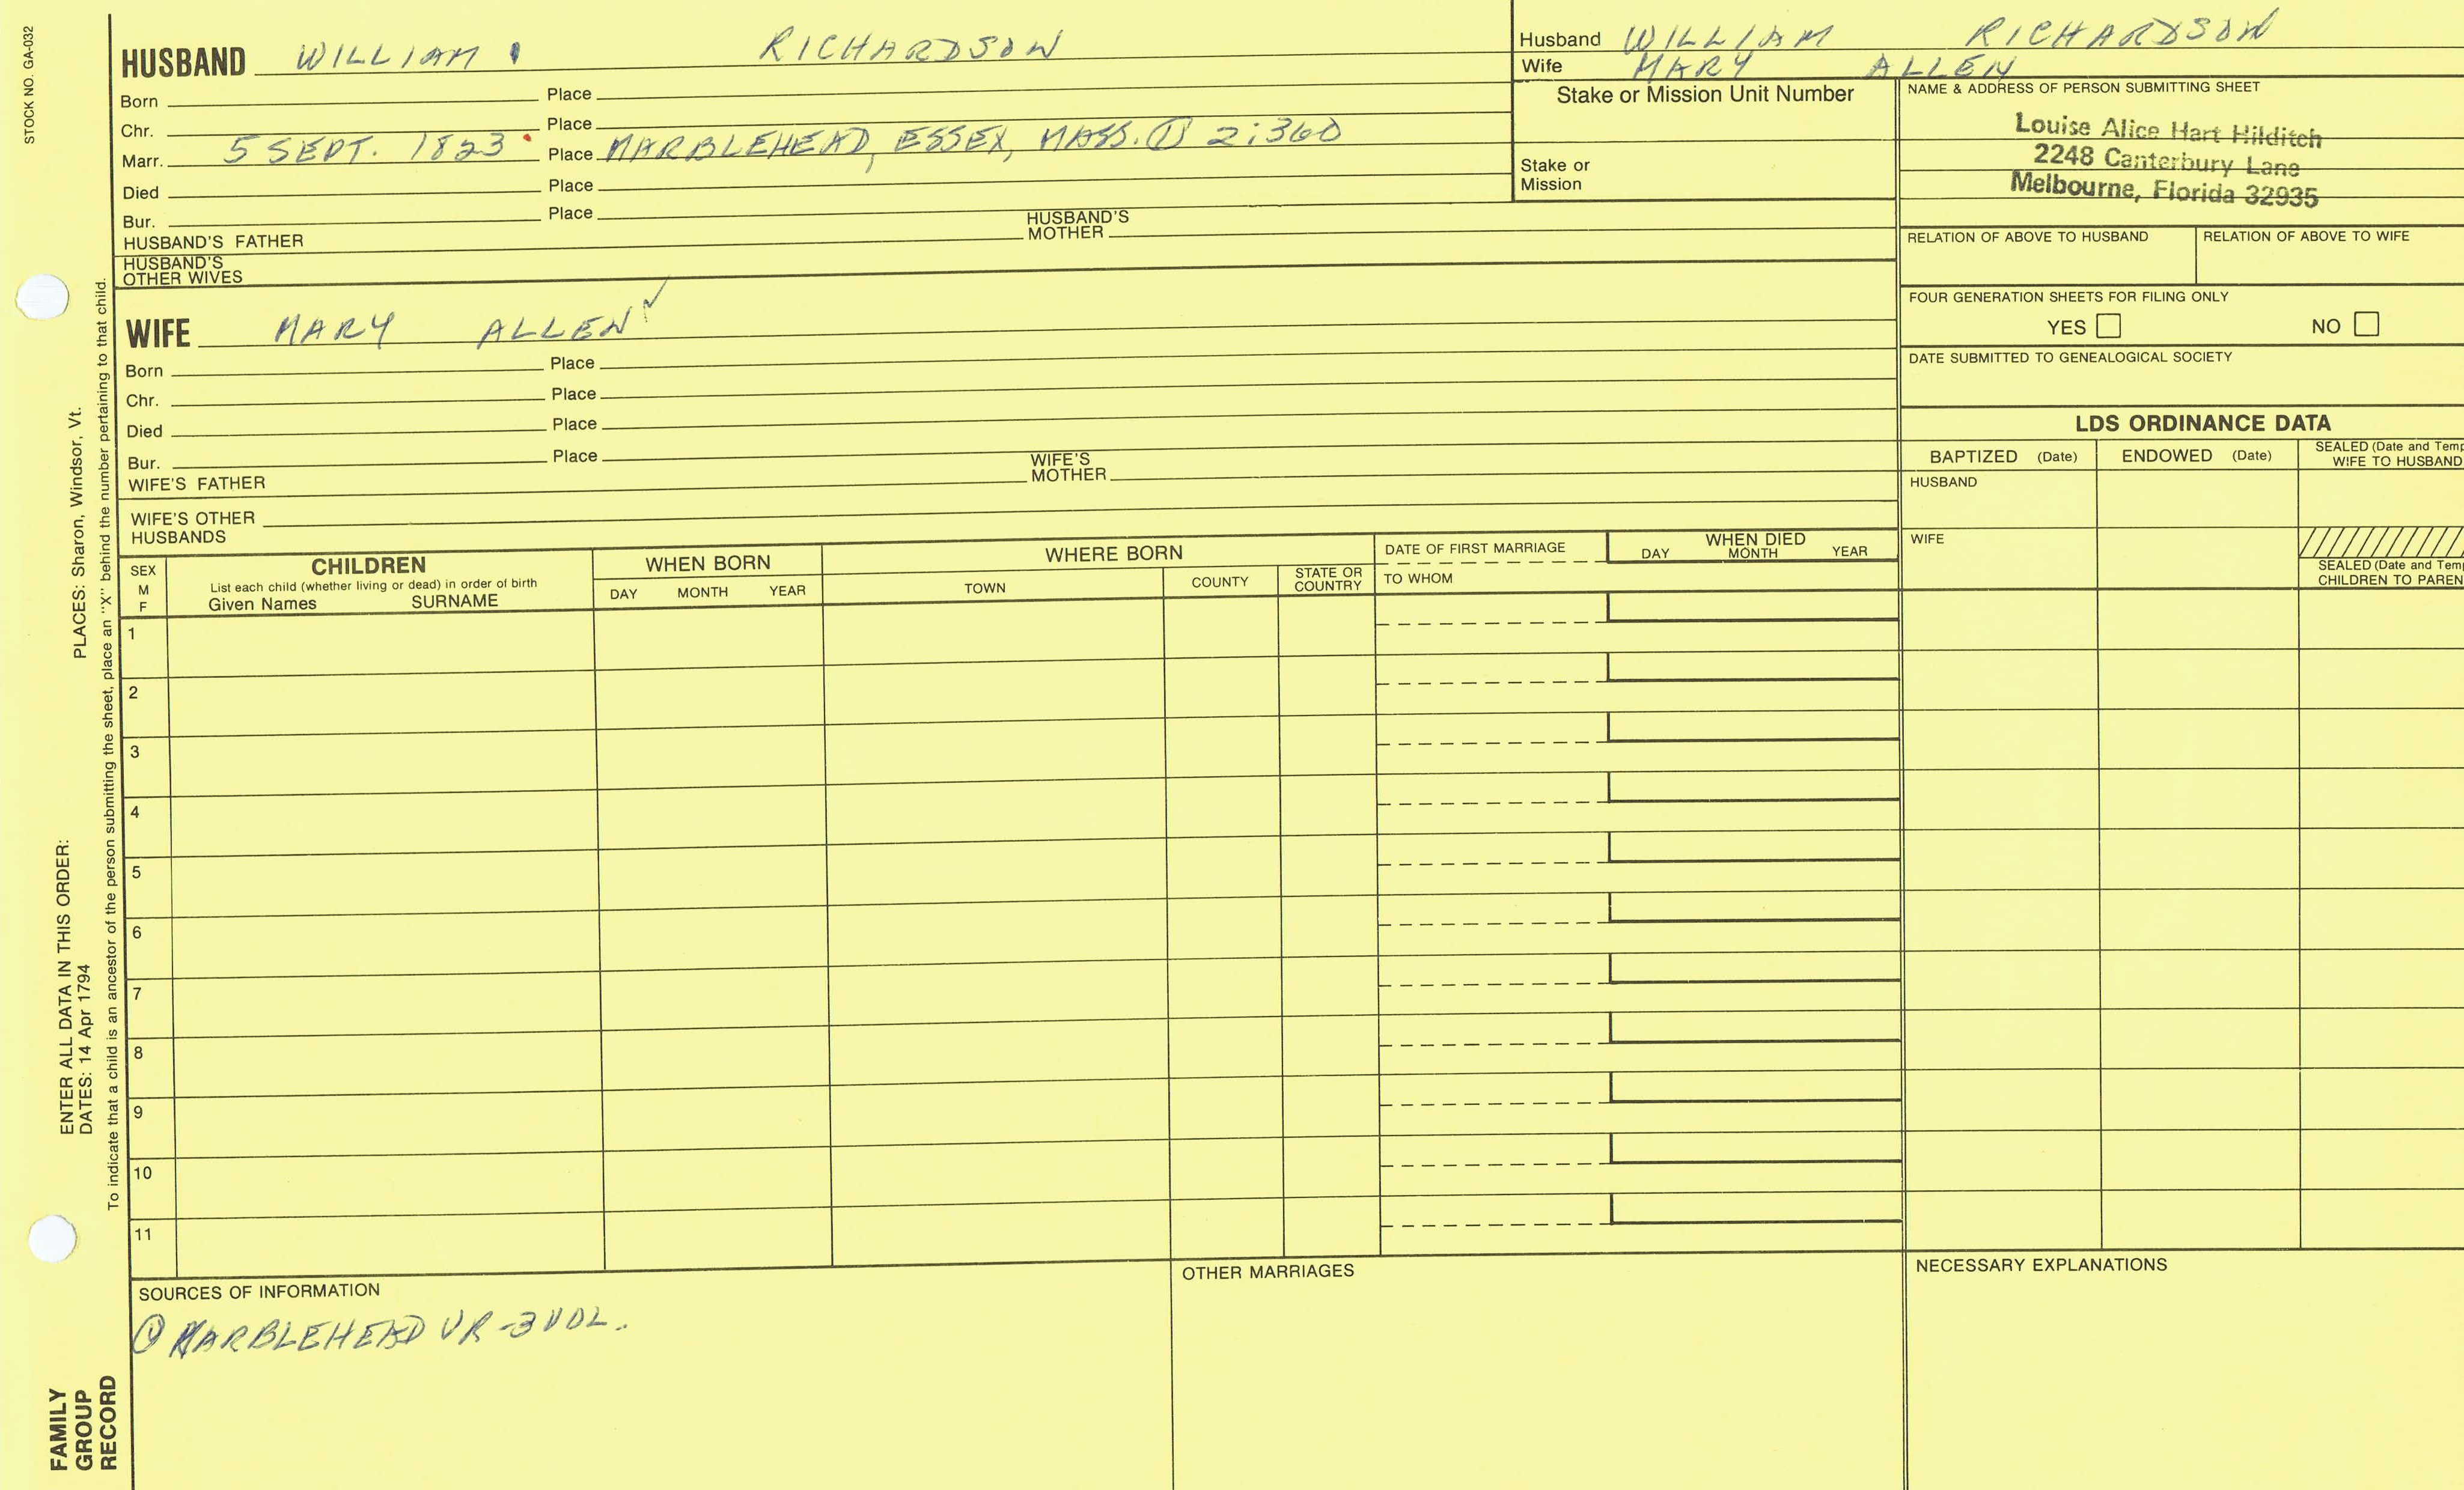 STOCK NO. GA-032
HUSBAND WILLIAM RICHARDSON
Born Place
Chr. Place
Marr. 5 SEPT. 1823 Place MARBLEHEAD, ESSEX, MASS. ① 2:360
Died Place
Bur. Place
HUSBAND'S FATHER HUSBAND'S MOTHER
HUSBAND'S OTHER WIVES
WIFE MARY ALLEN ✓
Born Place
Chr. Place
Died Place
Bur. Place
WIFE'S FATHER WIFE'S MOTHER
WIFE'S OTHER HUSBANDS
Husband WILLIAM RICHARDSON
Wife MARY ALLEN
Stake or Mission Unit Number
Stake or
Mission
NAME & ADDRESS OF PERSON SUBMITTING SHEET
Louise Alice Hart Hilditch
2248 Canterbury Lane
Melbourne, Florida 32935
RELATION OF ABOVE TO HUSBAND RELATION OF ABOVE TO WIFE
FOUR GENERATION SHEETS FOR FILING ONLY
YES NO
DATE SUBMITTED TO GENEALOGICAL SOCIETY
LDS ORDINANCE DATA
BAPTIZED (Date) ENDOWED (Date) SEALED (Date and Temp
WIFE TO HUSBAND
HUSBAND
WIFE
SEALED (Date and Temp
CHILDREN TO PAREN
SEX
M
F
CHILDREN
List each child (whether living or dead) in order of birth
Given Names SURNAME
WHEN BORN
DAY MONTH YEAR
WHERE BORN
TOWN COUNTY STATE OR COUNTRY
DATE OF FIRST MARRIAGE
TO WHOM
WHEN DIED
DAY MONTH YEAR
1
2
3
4
5
6
7
8
9
10
11
SOURCES OF INFORMATION
① MARBLEHEAD VR-3 VOL.
OTHER MARRIAGES
NECESSARY EXPLANATIONS
PLACES: Sharon, Windsor, Vt.
ENTER ALL DATA IN THIS ORDER:
DATES: 14 Apr 1794
To indicate that a child is an ancestor of the person submitting the sheet, place an "X" behind the number pertaining to that child.
FAMILY
GROUP
RECORD